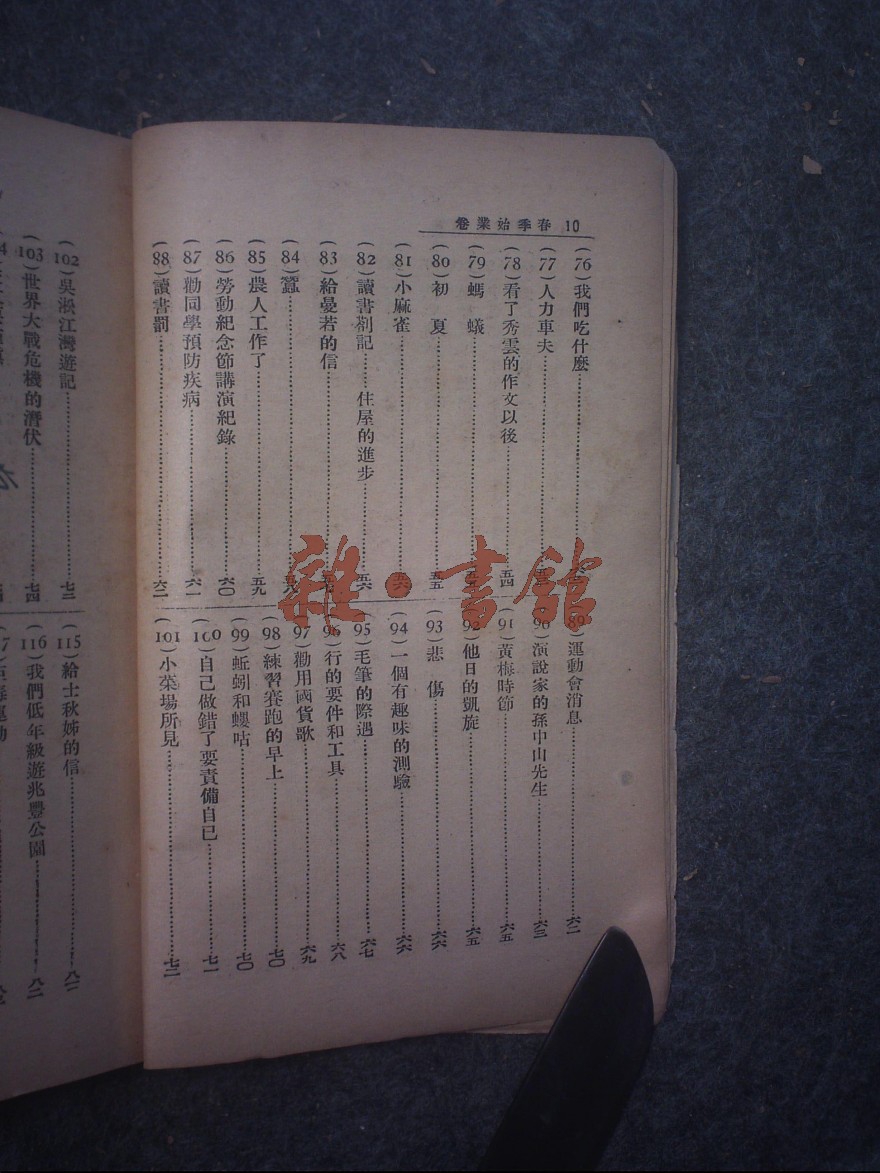 10 春季始業卷
(76)我們吃什麽
(77)人力車夫
(78)看了秀雲的作文以後……五四
(79)螞蟻
(80)初夏……五五
(81)小麻雀……五六
(82)讀書剳記……住屋的進步……五六
(83)給曼若的信
(84)蠶
(85)農人工作了……五九
(86)勞動紀念節講演紀錄……六〇
(87)勸同學預防疾病……六一
(88)讀書罰……六二
(89)運動會消息……六二
(90)演說家的孫中山先生……六三
(91)黃梅時節……六五
(92)他日的凱旋……六五
(93)悲傷……六六
(94)一個有趣味的測驗……六六
(95)毛筆的際遇……六七
(96)行的要件和工具……六八
(97)勸用國貨歌……六九
(98)練習賽跑的早上……七〇
(99)蚯蚓和螻咕……七〇
(100)自己做錯了要責備自己……七一
(101)小菜場所見……七二
(102)吳淞江灣遊記……七三
(103)世界大戰危機的潛伏……七四
(115)給士秋姊的信……八一
(116)我們低年級遊兆豐公園……八二
雜·書館